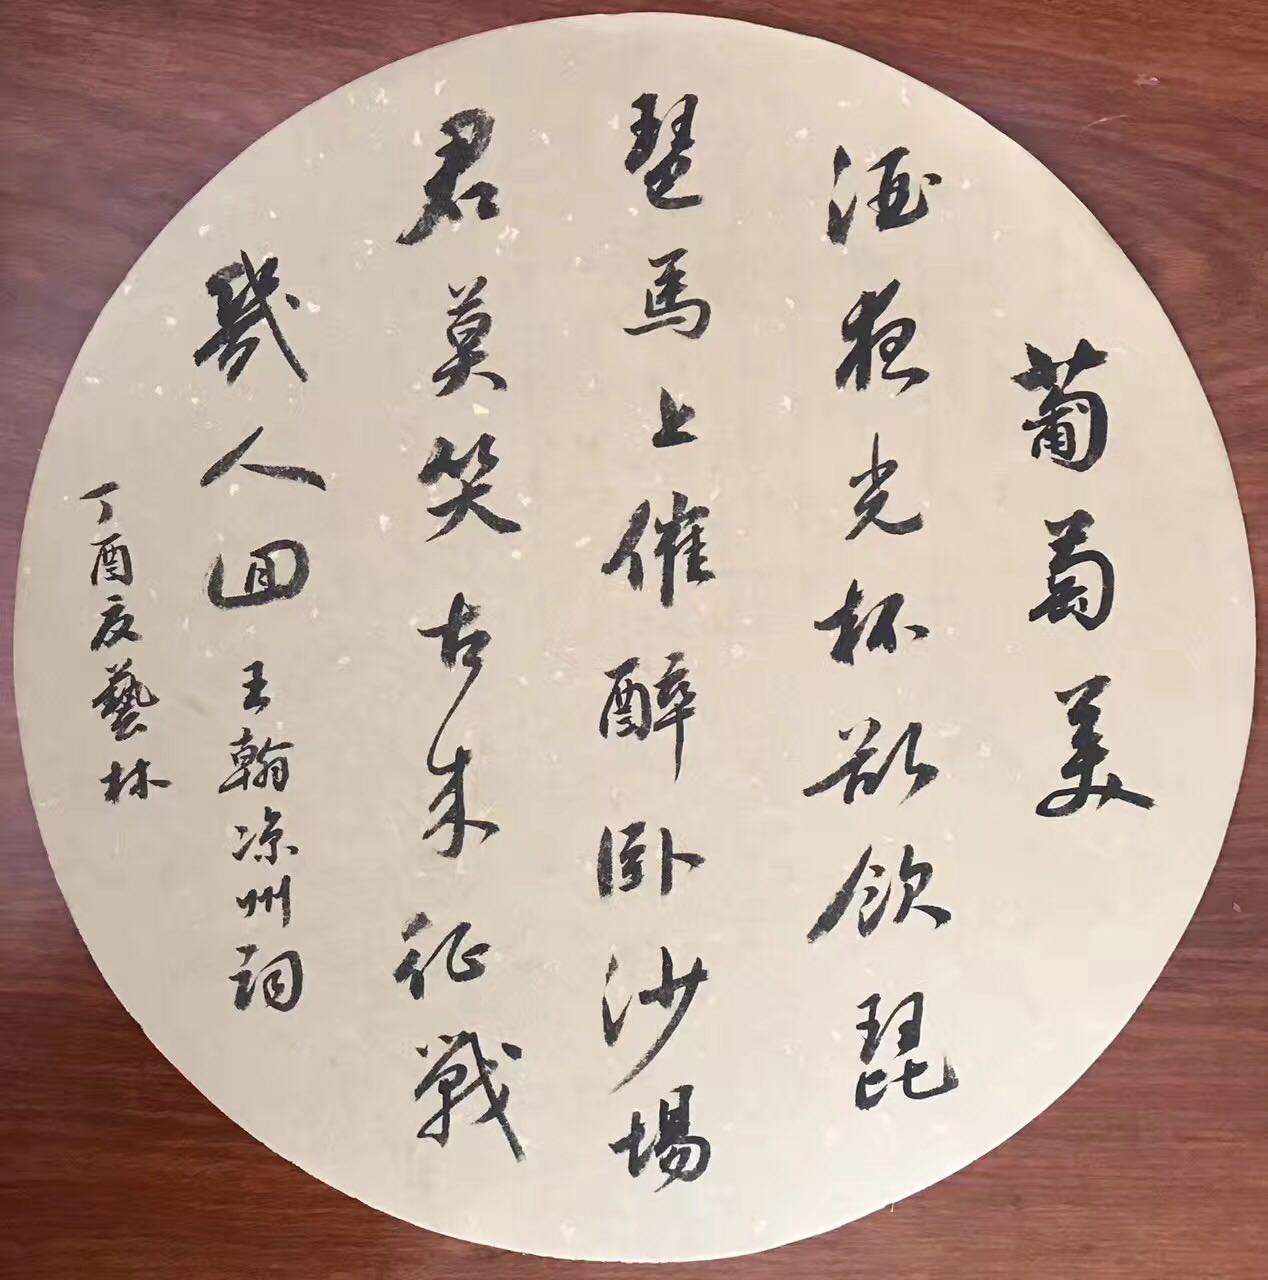 葡萄美
酒夜光杯欲飲琵
琶馬上催醉卧沙場
君莫笑古来征戰
幾人回王翰凉州詞
丁酉夏藝林